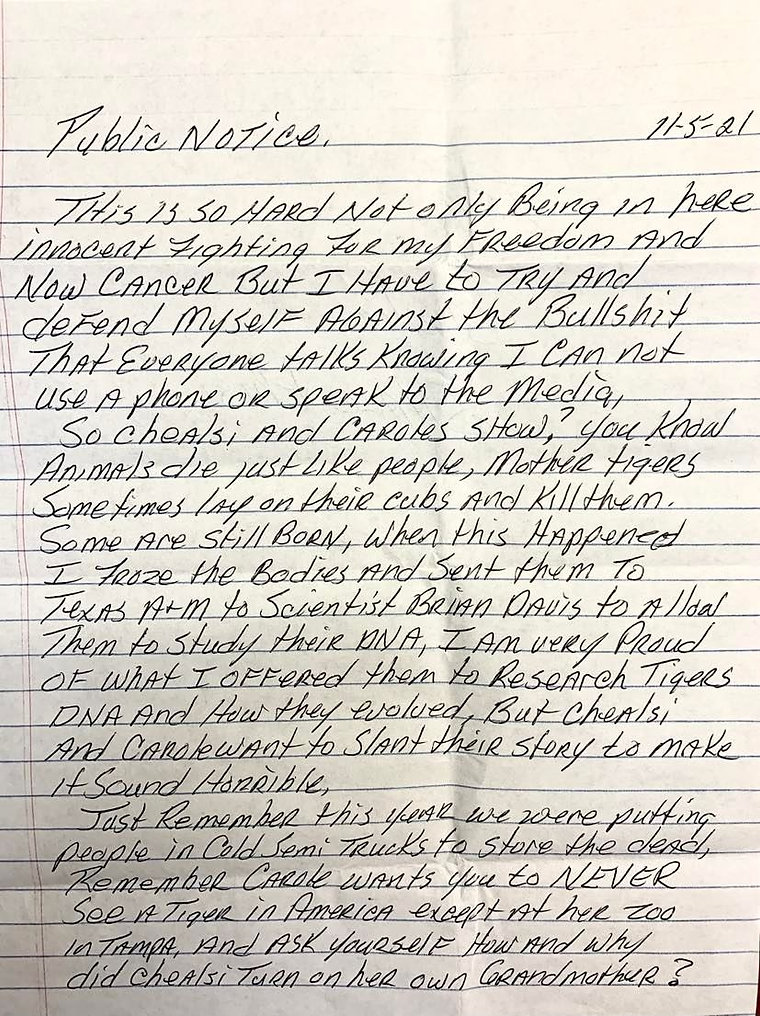 Public Notice. 11-5-21
This is so Hard Not only Being in here
innocent Fighting For my Freedom And
Now Cancer But I Have to Try And
defend Myself Against the Bullshit
That Everyone talks Knowing I Can not
use A phone or speak to the Media,
So Chealsi And Caroles Show? you Know
Animals die just Like people, Mother tigers
Sometimes lay on their cubs And Kill them.
Some Are still Born, When this Happened
I Froze the Bodies And Sent them To
Texas A+M to Scientist Brian Davis to Allow
Them to Study their DNA, I Am very Proud
OF what I OFFered them to Research Tigers
DNA And How they evolved, But Chealsi
And Carole want to Slant their story to make
it Sound Horrible,
Just Remember this year we were putting
people in Cold Semi Trucks to store the dead,
Remember Carole wants you to NEVER
See A Tiger in America except At her zoo
in Tampa, And Ask yourself How and Why
did Chealsi Turn on her own Grandmother?